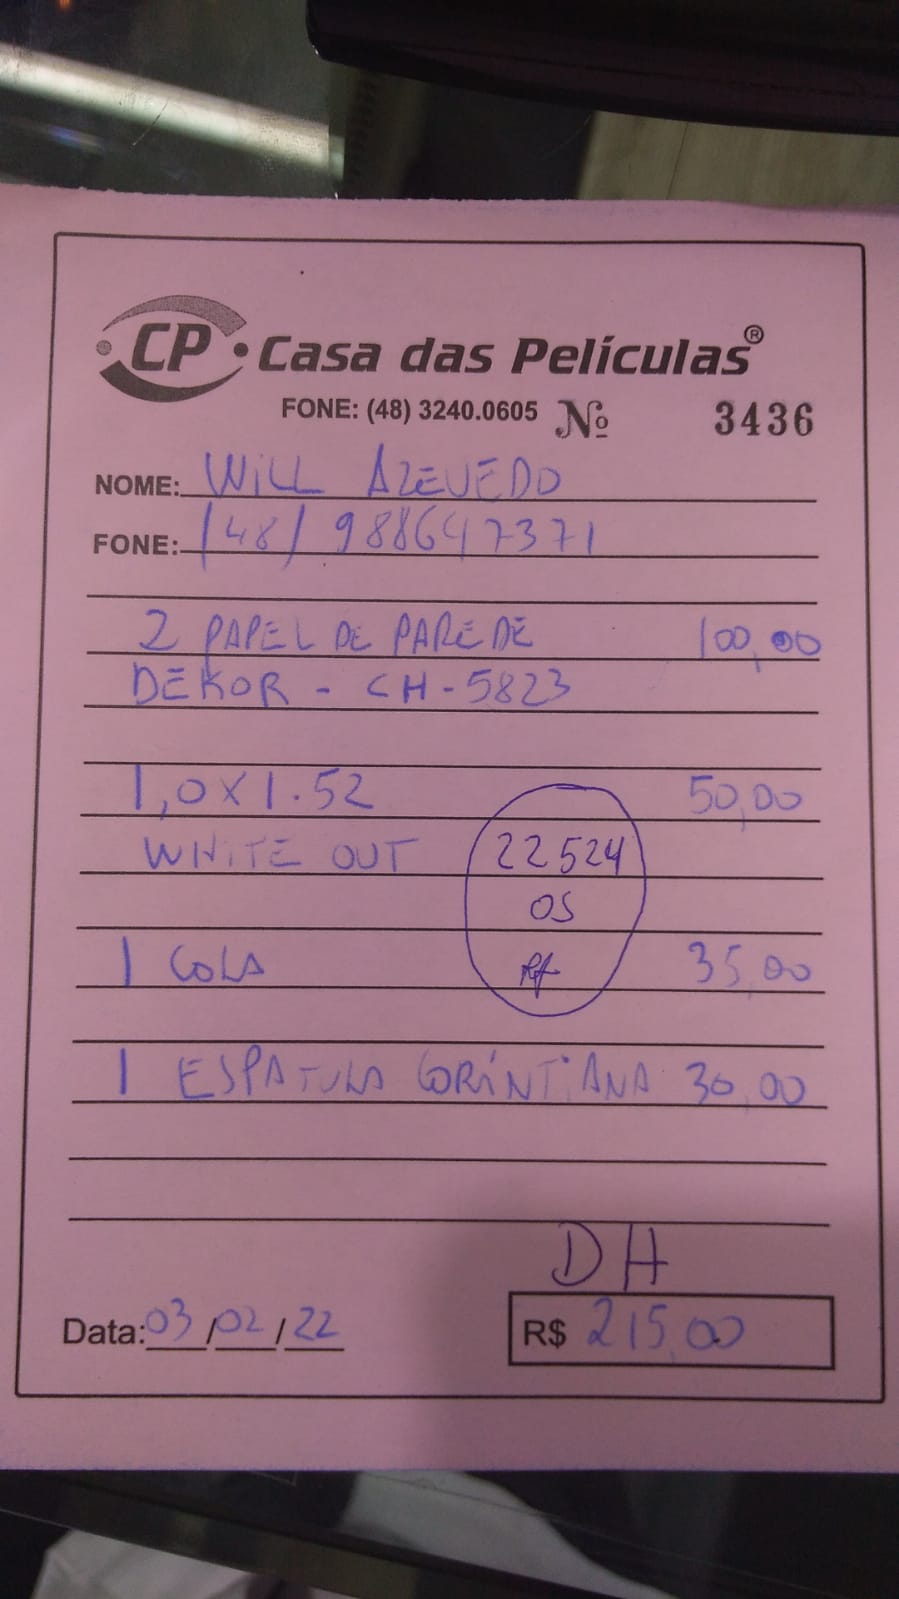 CP Casa das Películas®
FONE: (48) 3240.0605 Nº 3436
NOME: WILL AZEVEDO
FONE: (48) 988647371
2 PAPEL DE PAREDE 100,00
DEKOR - CH-5823
1,0 X 1.52 50,00
WHITE OUT 22524
OS
1 COLA 35,00
1 ESPATULA CORINTIANA 30,00
DH
Data: 03/02/22 R$ 215,00